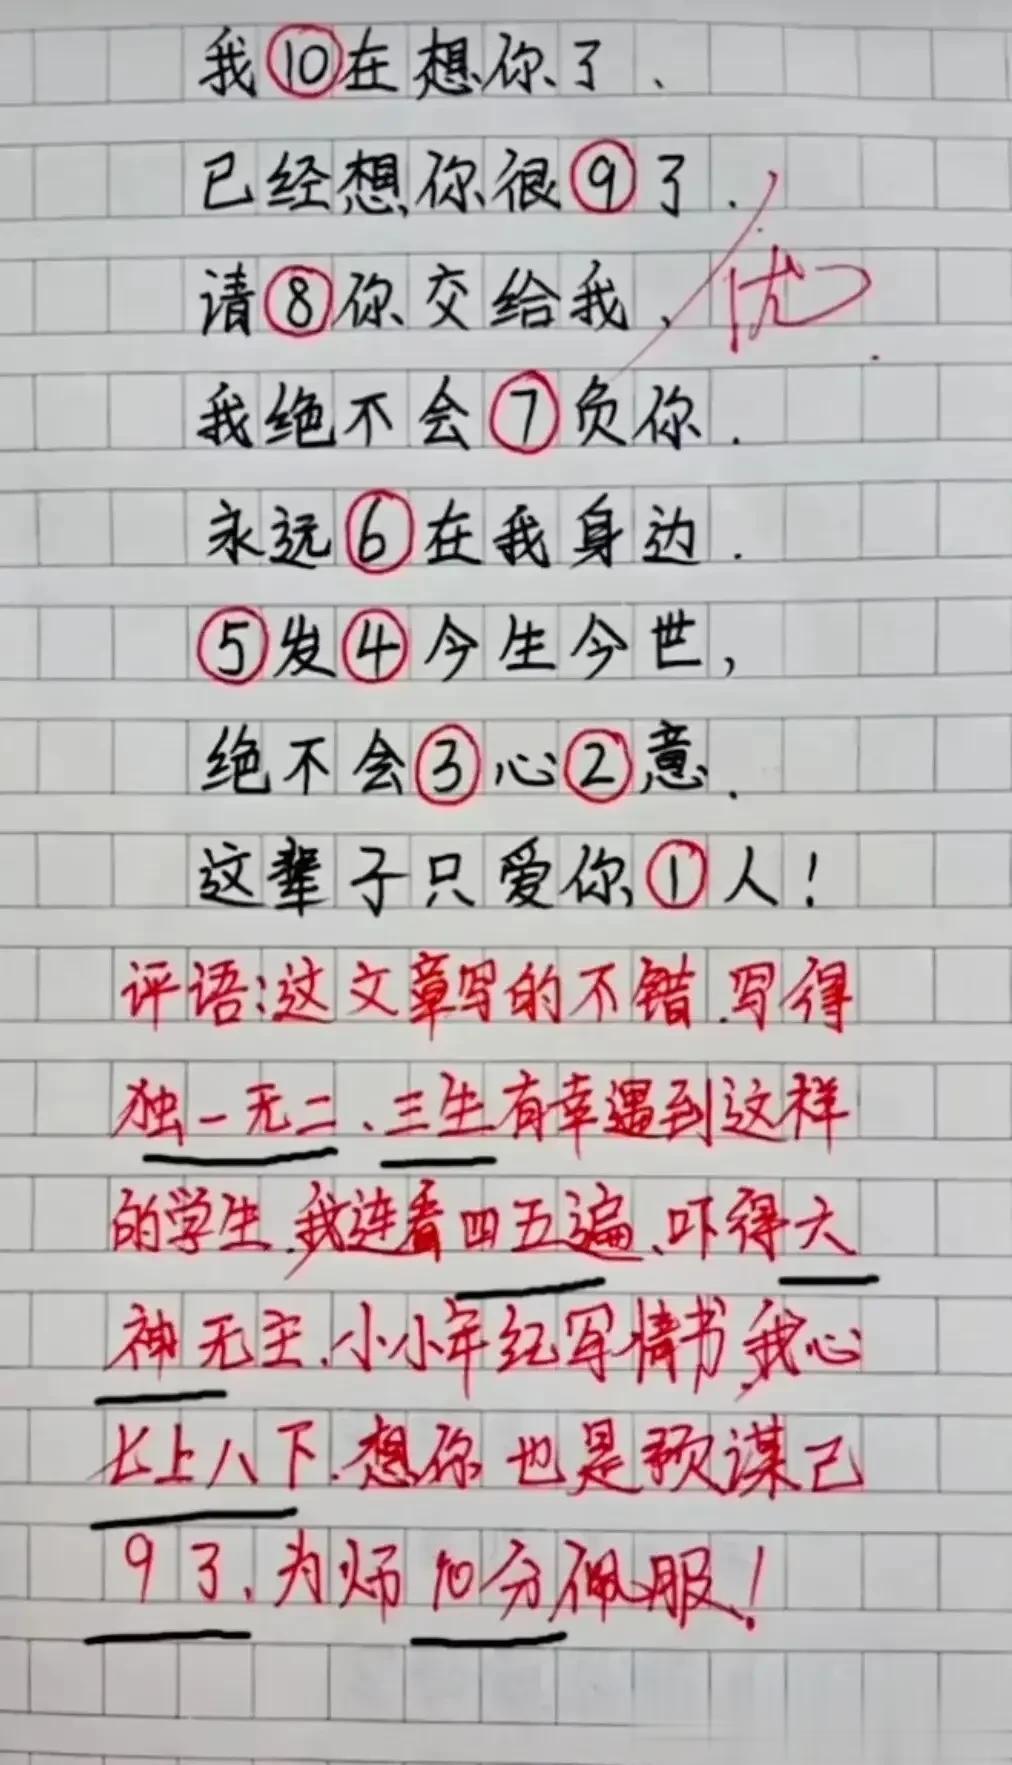 我⑩在想你了.
已经想你很⑨了.
请⑧你交给我,
优
我绝不会⑦负你.
永远⑥在我身边.
⑤发④今生今世,
绝不会③心②意.
这辈子只爱你①人!
评语:这文章写的不错.写得
独一无二、三生有幸遇到这样
的学生.我连看四五遍、吓得六
神无主.小小年纪写情书,我心
七上八下.想你也是预谋已
9了.为师10分佩服!